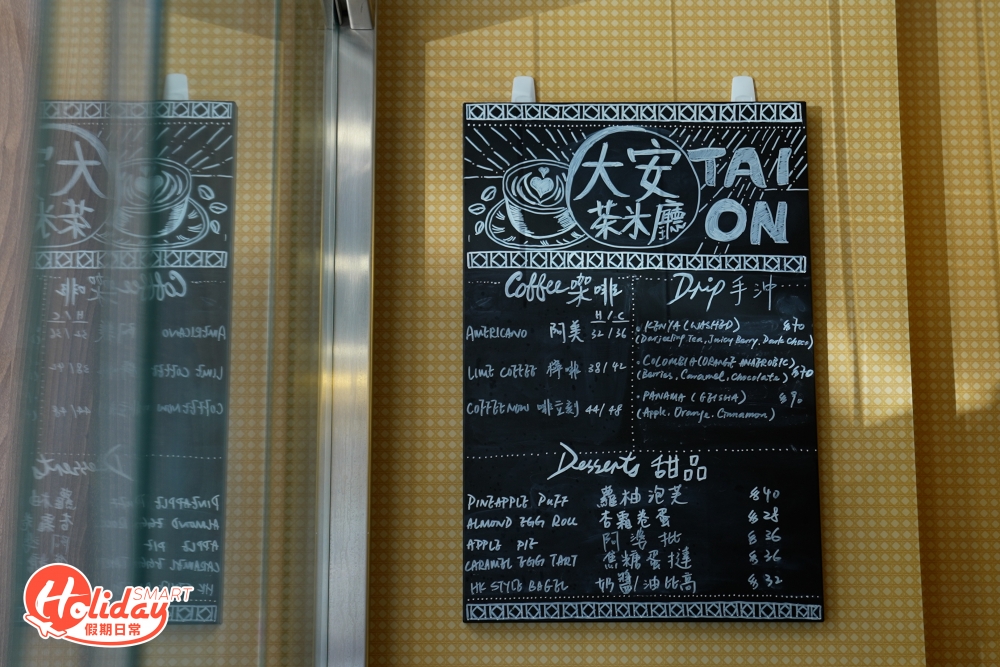 大安 TAI
茶米廳 ON
Coffee 架啡
H / C
AMERICANO 阿美 32 / 36
LIME COFFEE 檸啡 38 / 42
COFFEE NOW 啡立刻 44 / 48
Drip 手沖
· KENYA (WASHED) $70
(Darjeeling Tea, Juicy Berry, Dark Choco)
· COLOMBIA (ORANGE ANAEROBIC) $70
(Berries, Caramel, Chocolate)
· PANAMA (GEISHA) $90
(Apple, Orange, Cinnamon)
Desserts 甜品
PINEAPPLE PUFF 蘿柚泡芙 $40
ALMOND EGG ROLL 杏霜卷蛋 $28
APPLE PIE 阿婆批 $36
CARAMEL EGG TART 焦糖蛋撻 $36
HK STYLE BAGEL 奶醬/油占高 $32
Holiday SMART
假期日常